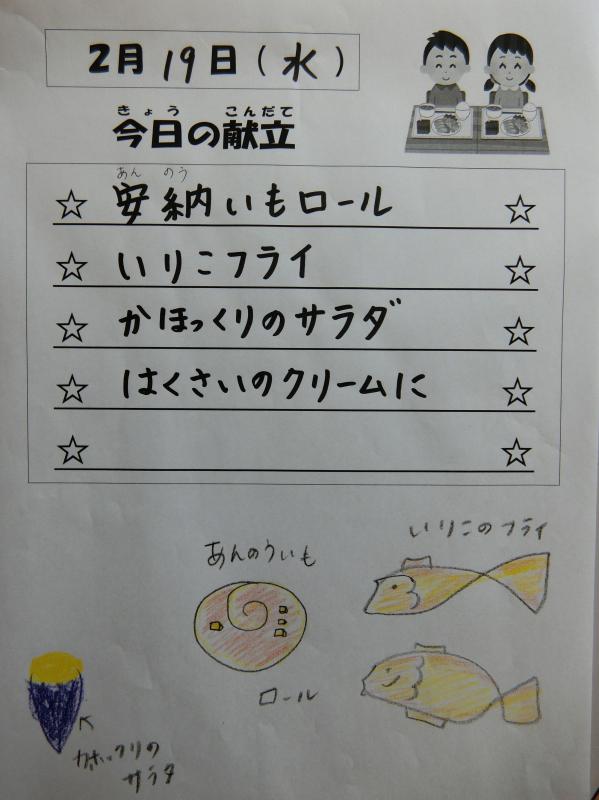 2月19日(水)
きょう こんだて
今日の献立
あん のう
☆ 安納いもロール ☆
☆ いりこフライ ☆
☆ かほっくりのサラダ ☆
☆ はくさいのクリームに ☆
☆ ☆
いりこのフライ
あんのういも
ロール
カホックリの
サラダ